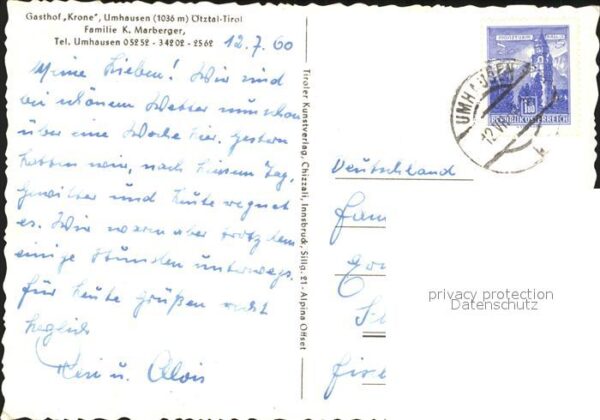 Gasthof „Krone", Umhausen (1036 m) Ötztal-Tirol
Familie K. Marberger,
Tel. Umhausen 05252 - 34202 - 2562
12.7.60
Meine Lieben! Wir sind
bei schönem Wetter nun schon
über eine Woche hier. Gestern
hatten wir, nach heissem Tag,
Gewitter und heute regnet
es. Wir waren aber trotzdem
einige Stunden unterwegs.
Für heute grüßen recht
herzlich
Resi u. Alois
Tiroler Kunstverlag, Chizzali, Innsbruck, Sillg. 21 - Alpina Offset
UMHAUSEN
12.VII
REPUBLIK ÖSTERREICH
Deutschland
Fam
privacy protection
Datenschutz